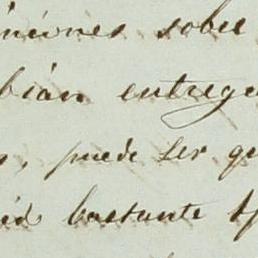 iniones sobre
bian entreg
, puede ser qu
id bastante